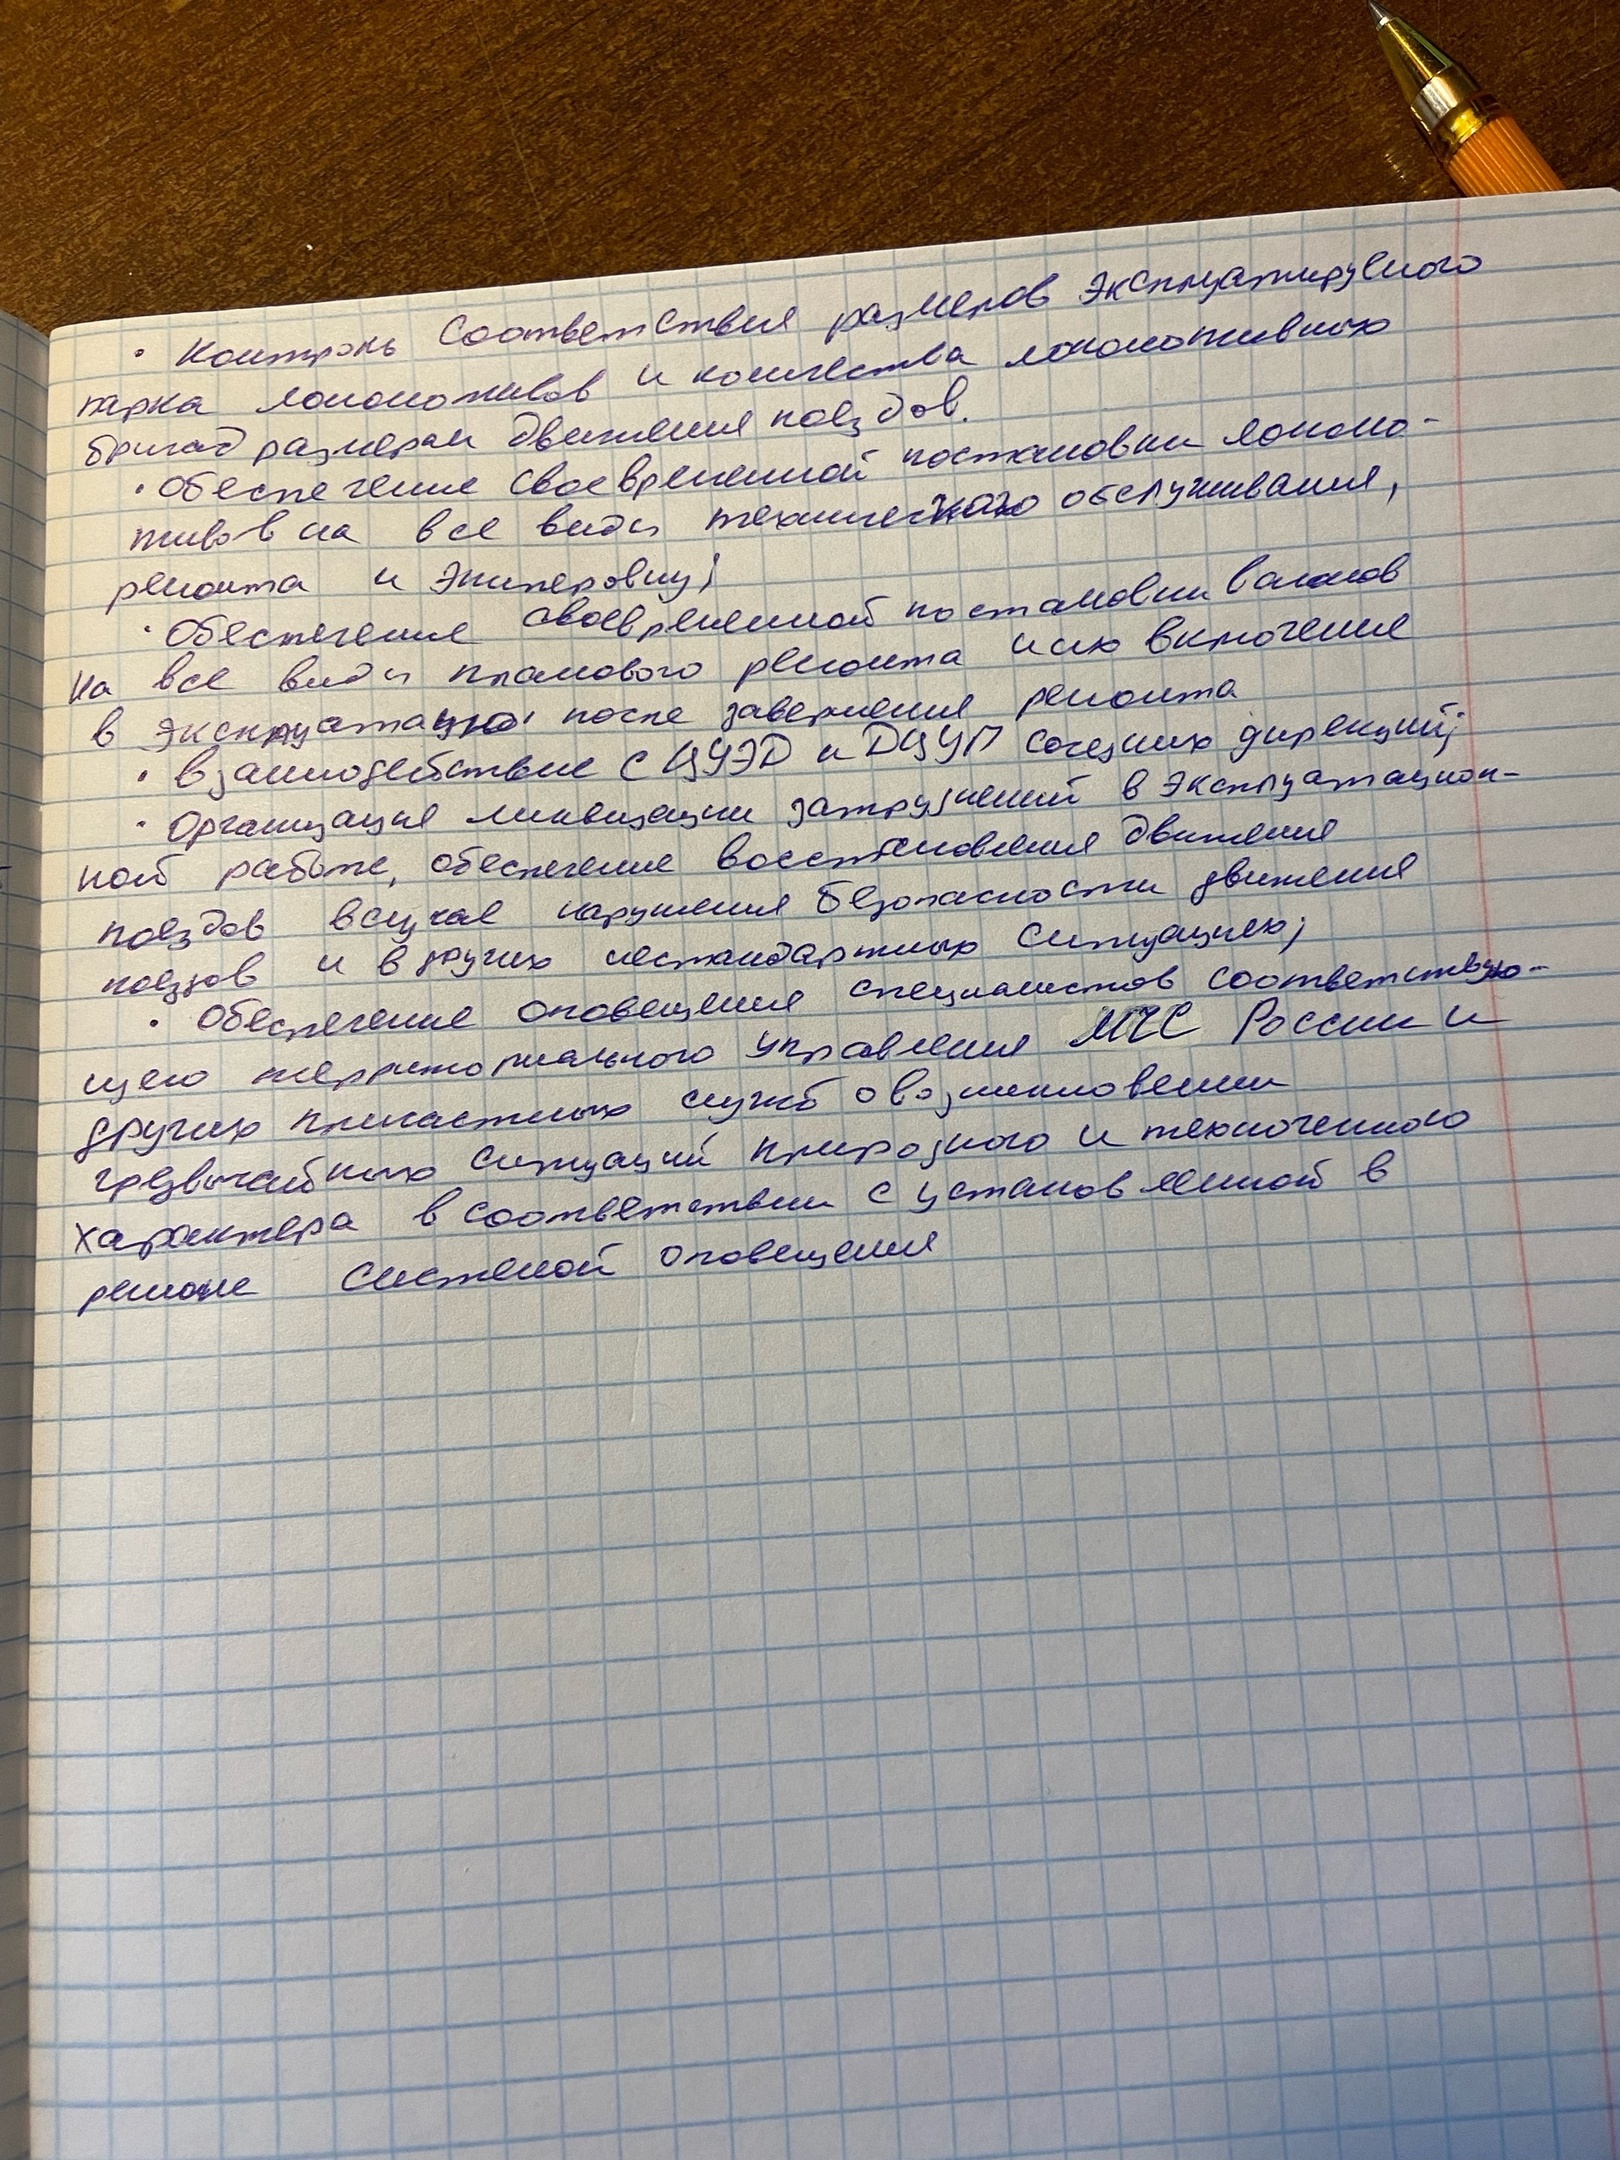 · Контроль соответствия размеров эксплуатируемого
парка локомотивов и количества локомотивных
бригад размерам движения поездов.
· Обеспечение своевременной постановки локомо-
тивов на все виды технического обслуживания,
ремонта и экиперовку;
· Обеспечение своевременной постановки вагонов
на все виды планового ремонта и их включение
в эксплуатацию после завершения ремонта
· Взаимодействие с ЦУЭД и ДЦУП соседних дирекций;
· Организация ликвидации затруднений в эксплуатацион-
ной работе, обеспечение восстановления движения
поездов в случае нарушения безопасности движения
поездов и в других нестандартных ситуациях;
· Обеспечение оповещения специалистов соответствую-
щего территориального управления МЧС России и
других причастных служб о возникновении
чрезвычайных ситуаций природного и техногенного
характера в соответствии с установленной в
регионе системой оповещения